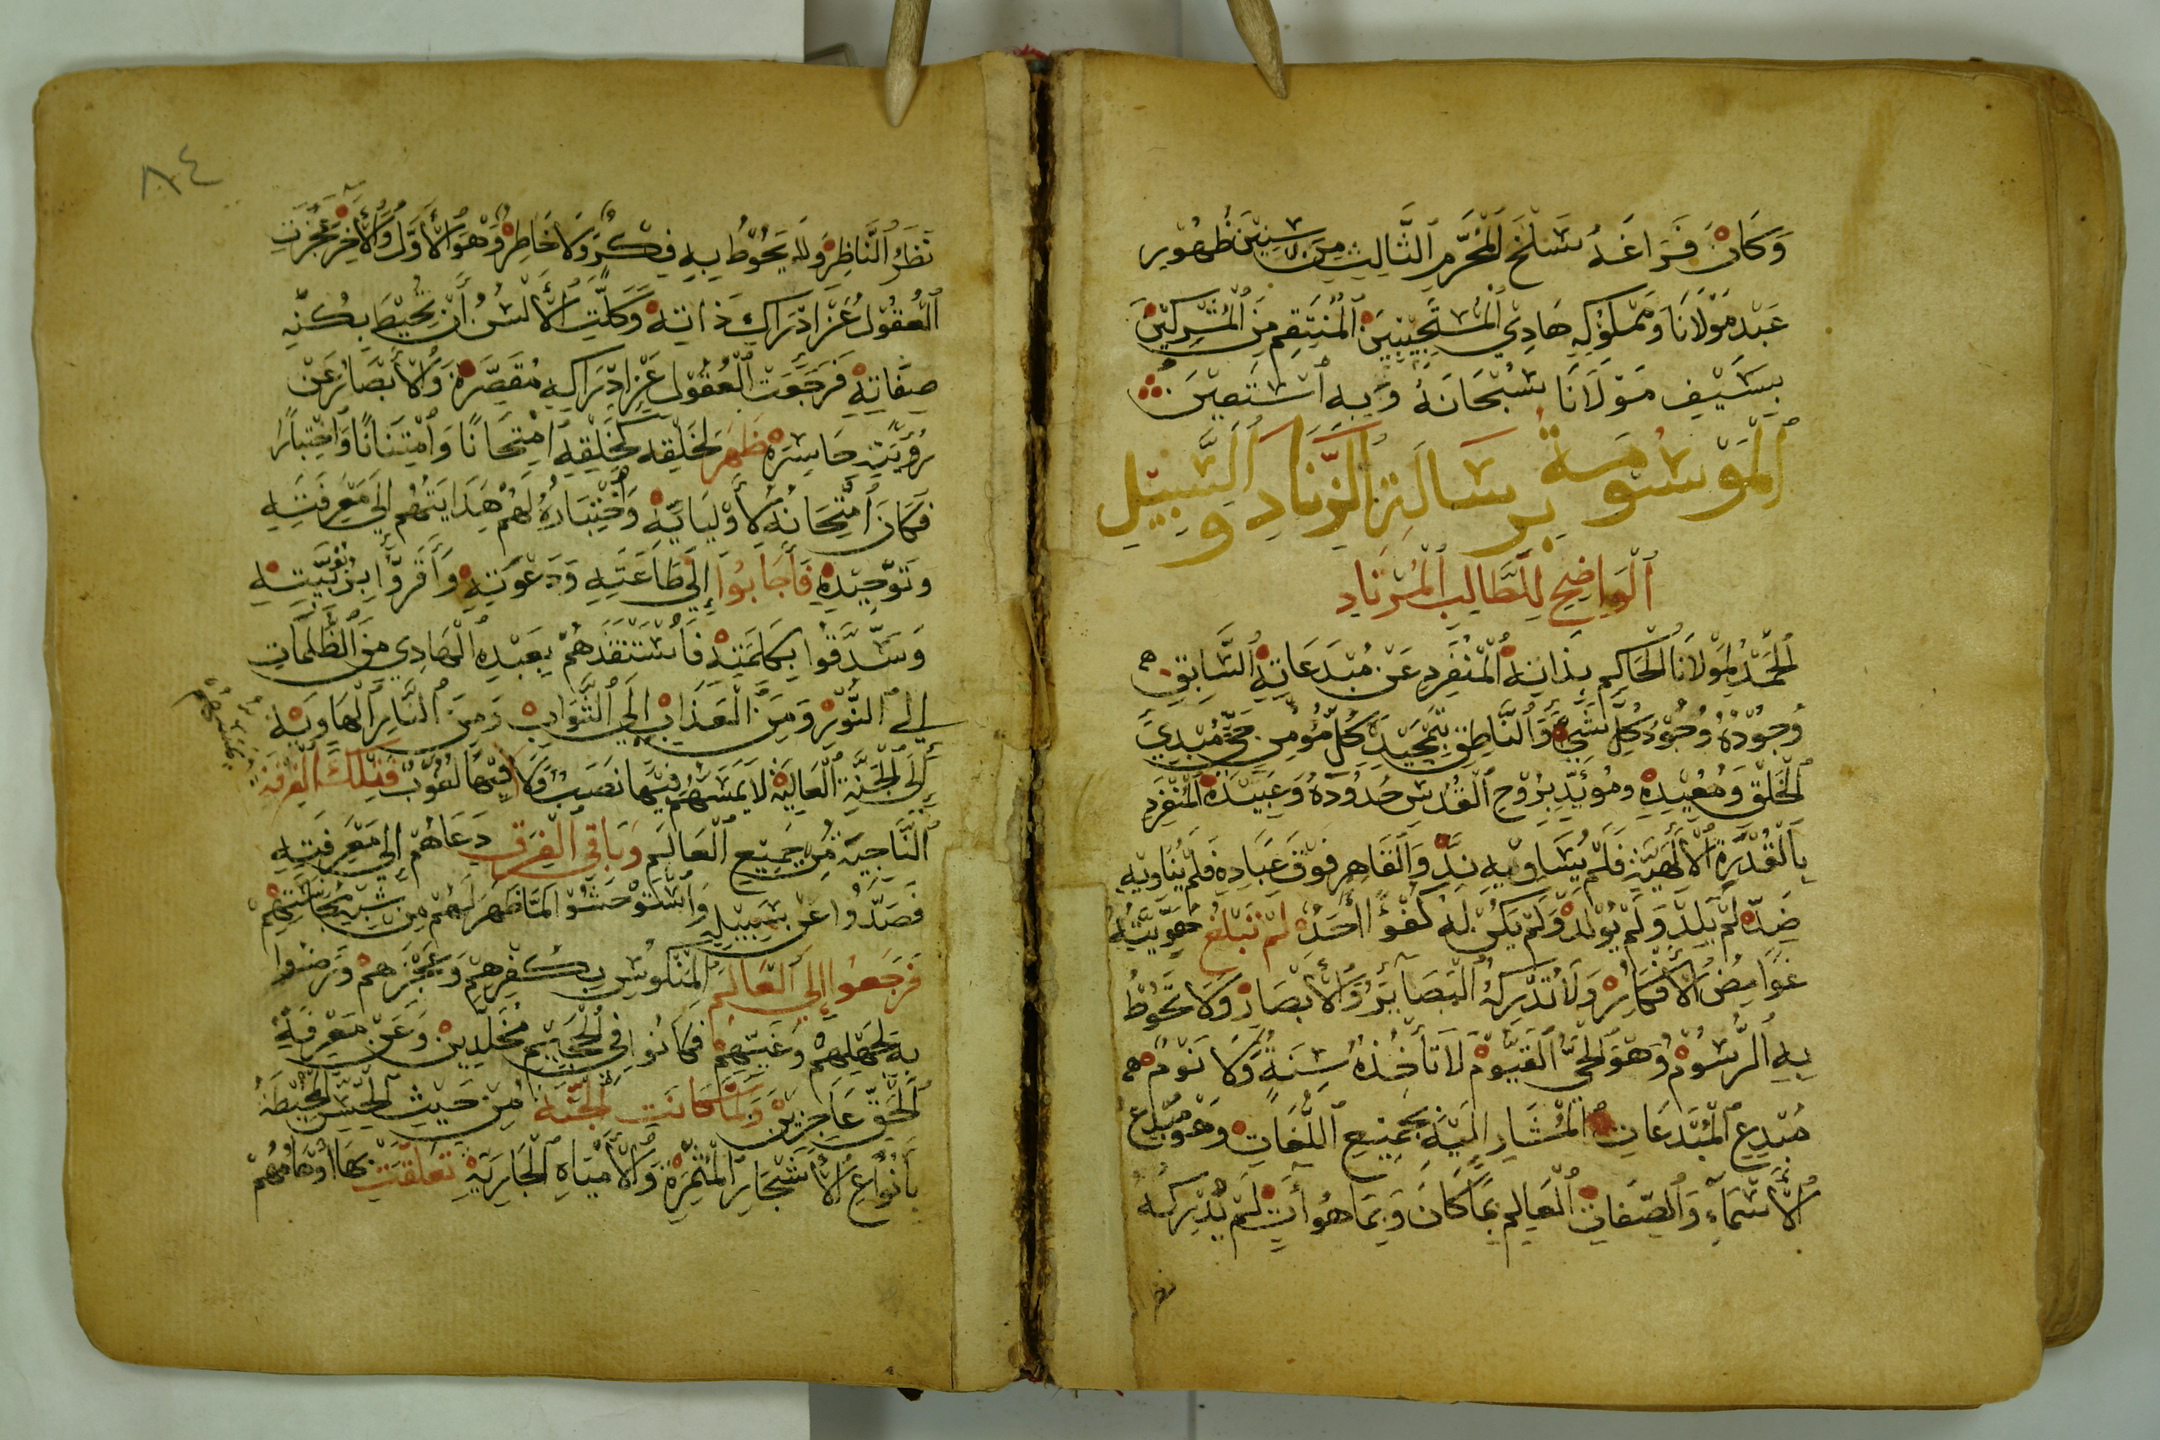 وَكَانَ فَرَاغَهُ سَلْخَ الْمُحَرَّمِ الثَّالِثِ مِنْ سِنِيْنَ ظُهُوْرِ
عَبْدِ مَوْلَانَا وَمَمْلُوْكِهِ هَادِي الْمُسْتَجِيْبِيْنَ الْمُنْتَقِمِ مِنَ الْمُشْرِكِيْنَ
بِسَيْفِ مَوْلَانَا سُبْحَانَهُ وَبِهِ اسْتَعِيْنَ
الْمَوْسُوْمَةُ بِرِسَالَةِ الزِّنَادِ وَالسَّبِيْلِ
الْوَاضِحِ لِلطَّالِبِ الْمُرْتَادِ
الْحَمْدُ لِمَوْلَانَا الْحَاكِمِ بِذَاتِهِ الْمُنْفَرِدِ عَنْ مُبْدَعَاتِهِ السَّابِقِ
وُجُوْدُهُ وُجُوْدَ كُلِّ شَيْءٍ وَالنَّاطِقِ بِتَمْجِيْدِهِ كُلُّ مُؤْمِنٍ حَيٍّ مُبْدِئِ
الْخَلْقِ وَمُعِيْدِهِ وَمُؤَيِّدِ بِرُوْحِ الْقُدْسِ حُدُوْدَهُ وَعَبِيْدَهُ الْمُنْفَرِدِ
بِالْقُدْرَةِ الْأَلَهِيَّةِ فَلَمْ يُسَاوِيْهِ نِدٌّ وَالْقَاهِرِ فَوْقَ عِبَادِهِ فَلَمْ يُنَاوِيْهِ
ضِدٌّ لَمْ يَلِدْ وَلَمْ يُوْلَدْ وَلَمْ يَكُنْ لَهُ كُفُوًا أَحَدٌ لَمْ تَبْلُغْ هُوِيَّتَهُ
غَوَامِضُ الْأَفْكَارِ وَلَا تُدْرِكُهُ الْبَصَآئِرُ وَالْأَبْصَارُ وَلَا تَحُوْطُ
بِهِ الرُّسُوْمُ وَهُوَ الْحَيُّ الْقَيُّوْمُ لَا تَأْخُذُهُ سِنَةٌ وَلَا نَوْمٌ
مُبْدِعُ الْمُبْدَعَاتِ الْمُشَارُ إِلَيْهِ بِجَمِيْعِ اللُّغَاتِ وَهُوَ مُبْدِعُ
الْأَسْمَآءِ وَالصِّفَاتِ الْعَالِمُ بِمَا كَانَ وَبِمَا هُوَ آتٍ لَمْ يُدْرِكْهُ
نظر
٨٤
نَظَرُ النَّاظِرِ وَلَا يَحُوْطُ بِهِ فِكْرٌ وَلَا خَاطِرٌ وَهُوَ الْأَوَّلُ وَالْأَخِرُ عَجَزَتِ
الْعُقُوْلُ عَنْ إِدْرَاكِ ذَاتِهِ وَكَلَّتِ الْأَلْسُنُ أَنْ تُحِيْطَ بِكُنْهِ
صِفَاتِهِ فَرَجَعَتِ الْعُقُوْلُ عَنْ إِدْرَاكِهِ مُقَصِّرَةً وَالْأَبْصَارُ عَنْ
رُؤْيَتِهِ حَاسِرَةً ظَهَرَ لِخَلْقِهِ كَخَلْقِهِ امْتِحَانًا وَامْتِنَانًا وَاخْتِبَارًا
فَكَانَ امْتِحَانُهُ لِأَوْلِيَائِهِ وَاخْتِبَارُهُ لَهُمْ هِدَايَتَهُمْ إِلَى مَعْرِفَتِهِ
وَتَوْحِيْدِهِ فَأَجَابُوْا إِلَى طَاعَتِهِ وَدَعْوَتِهِ وَأَقَرُّوْا بِرُبُوْبِيَّتِهِ
وَسَدَّقُوْا بِكَلِمَتِهِ فَاسْتَنْقَذَهُمْ بِعَبْدِهِ الْهَادِي مِنَ الظُّلُمَاتِ
إِلَى النُّوْرِ وَمِنَ الْعَذَابِ إِلَى الثَّوَابِ وَمِنَ النَّارِ الْهَاوِيَةِ
إِلَى الْجَنَّةِ الْعَالِيَةِ لَا يَمَسُّهُمْ فِيْهَا نَصَبٌ وَلَا فِيْهَا لُغُوْبٌ فَتِلْكَ الْفِرْقَةُ
النَّاجِيَةُ مِنْ جَمِيْعِ الْعَالَمِ وَبَاقِي الْفِرَقِ دَعَاهُمْ إِلَى مَعْرِفَتِهِ
فَصَدُّوْا عَنْ سَبِيْلِهِ وَاسْتَوْحَشُوْا لِمَا ظَهَرَ لَهُمْ مِنْ شِبْهِ مُجَانَسَتِهِمْ
فَرَجَعُوْا إِلَى الْعَالَمِ الْمَنْكُوْسِ بِكُفْرِهِمْ وَعَجْزِهِمْ وَرَضُوْا
بِهِ لِجَهْلِهِمْ وَغَيِّهِمْ فَكَانُوْا فِي الْجَحِيْمِ مُخَلَّدِيْنَ وَعَنْ مَعْرِفَةِ
الْحَقِّ عَاجِزِيْنَ وَلَمَّا كَانَتِ الْجَنَّةُ مِنْ حَيْثُ الْحِسِّ الْمُحِيْطَةُ
بِأَنْوَاعِ الْأَشْجَارِ الْمُثْمِرَةِ وَالْأَمْيَاهِ الْجَارِيَةِ تَعَلَّقَتْ بِهَا أَوْهَامُهُمْ